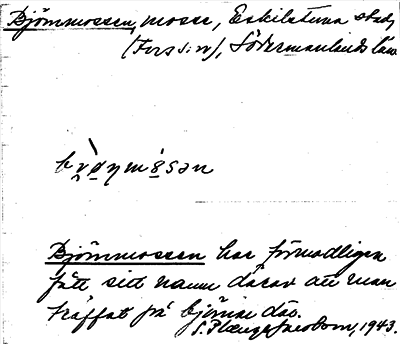 Björnmossen, mosse, Eskilstuna stad,
(Fors s:n), Södermanlands län
Björnmossen har förmodligen
fått sitt namn därav att man
träffat på björnar där.
1943.